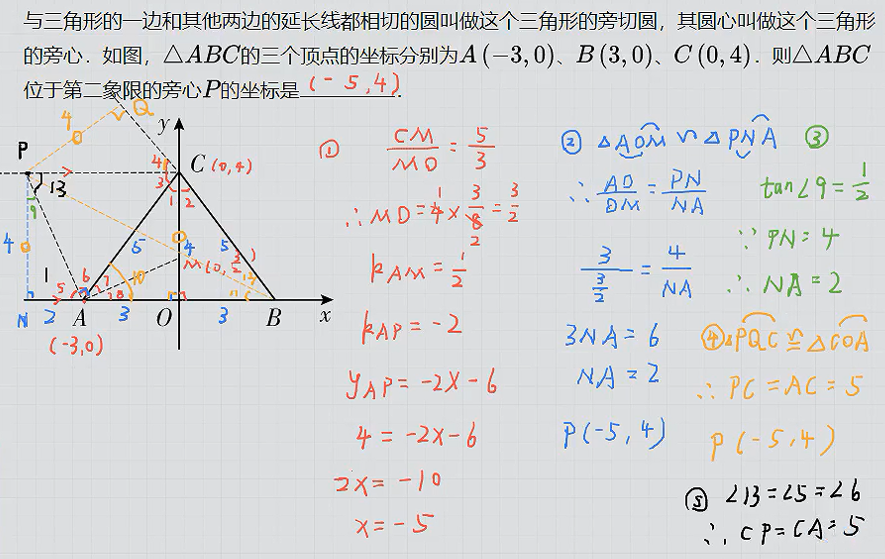 与三角形的一边和其他两边的延长线都相切的圆叫做这个三角形的旁切圆，其圆心叫做这个三角形
的旁心．如图，△ABC的三个顶点的坐标分别为A(-3,0)、B(3,0)、C(0,4)．则△ABC
位于第二象限的旁心P的坐标是 (-5,4) ．
4 Q
P y
C (0,4)
13 4 3 1 2
9
4 5 4 5
M(0, 3/2)
1 6 7 10
5 8
N 2 A 3 O 3 B x
(-3,0)
① CM/MO = 5/3
∴ MO = 4 × 3/8 = 3/2
1 2
k AM = 1/2
k AP = -2
y AP = -2x-6
4 = -2x-6
2x = -10
x = -5
② △AOM ∽ △PNA
∴ AO/OM = PN/NA
3/(3/2) = 4/NA
3NA = 6
NA = 2
P(-5,4)
③
tan∠9 = 1/2
∵ PN = 4
∴ NA = 2
④ △PQC ≌ △COA
∴ PC = AC = 5
P(-5,4)
⑤ ∠13 = ∠5 = ∠6
∴ CP = CA = 5